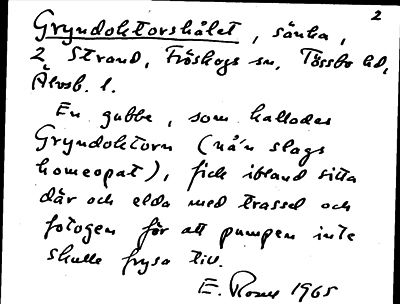 2
Gryndoktorshålet, sänka,
2 Strand, Fröskogs sn, Tössbo hd,
Älvsb. l.
En gubbe, som kallades
Gryndoktorn (nå'n slags
homeopat), fick ibland sitta
där och elda med trassel och
fotogen för att pumpen inte
skulle frysa till.
E. Rosell 1965